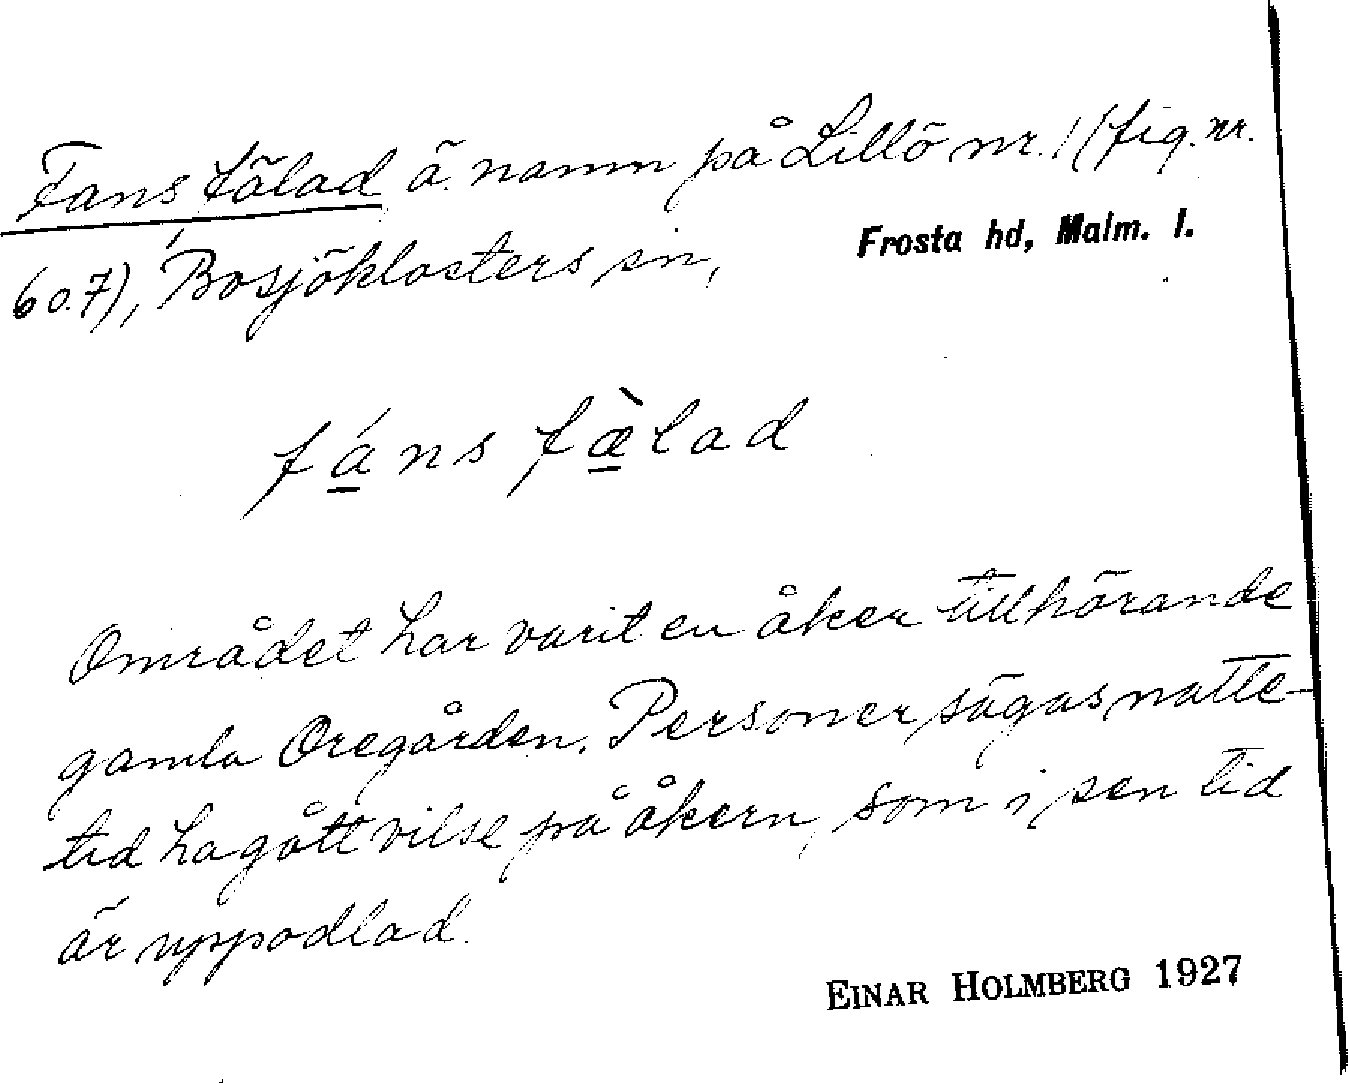 Fans fälad ä. namn på Lillö nr. 1 (fig. nr.
607), Bosjöklosters sn, Frosta hd, Malm. l.
fáns fæ̀lad
Området har varit en åker tillhörande
gamla Oregården. Personer sägas natte-
tid ha gått vilse på åkern, som i sen tid
är uppodlad.
EINAR HOLMBERG 1927